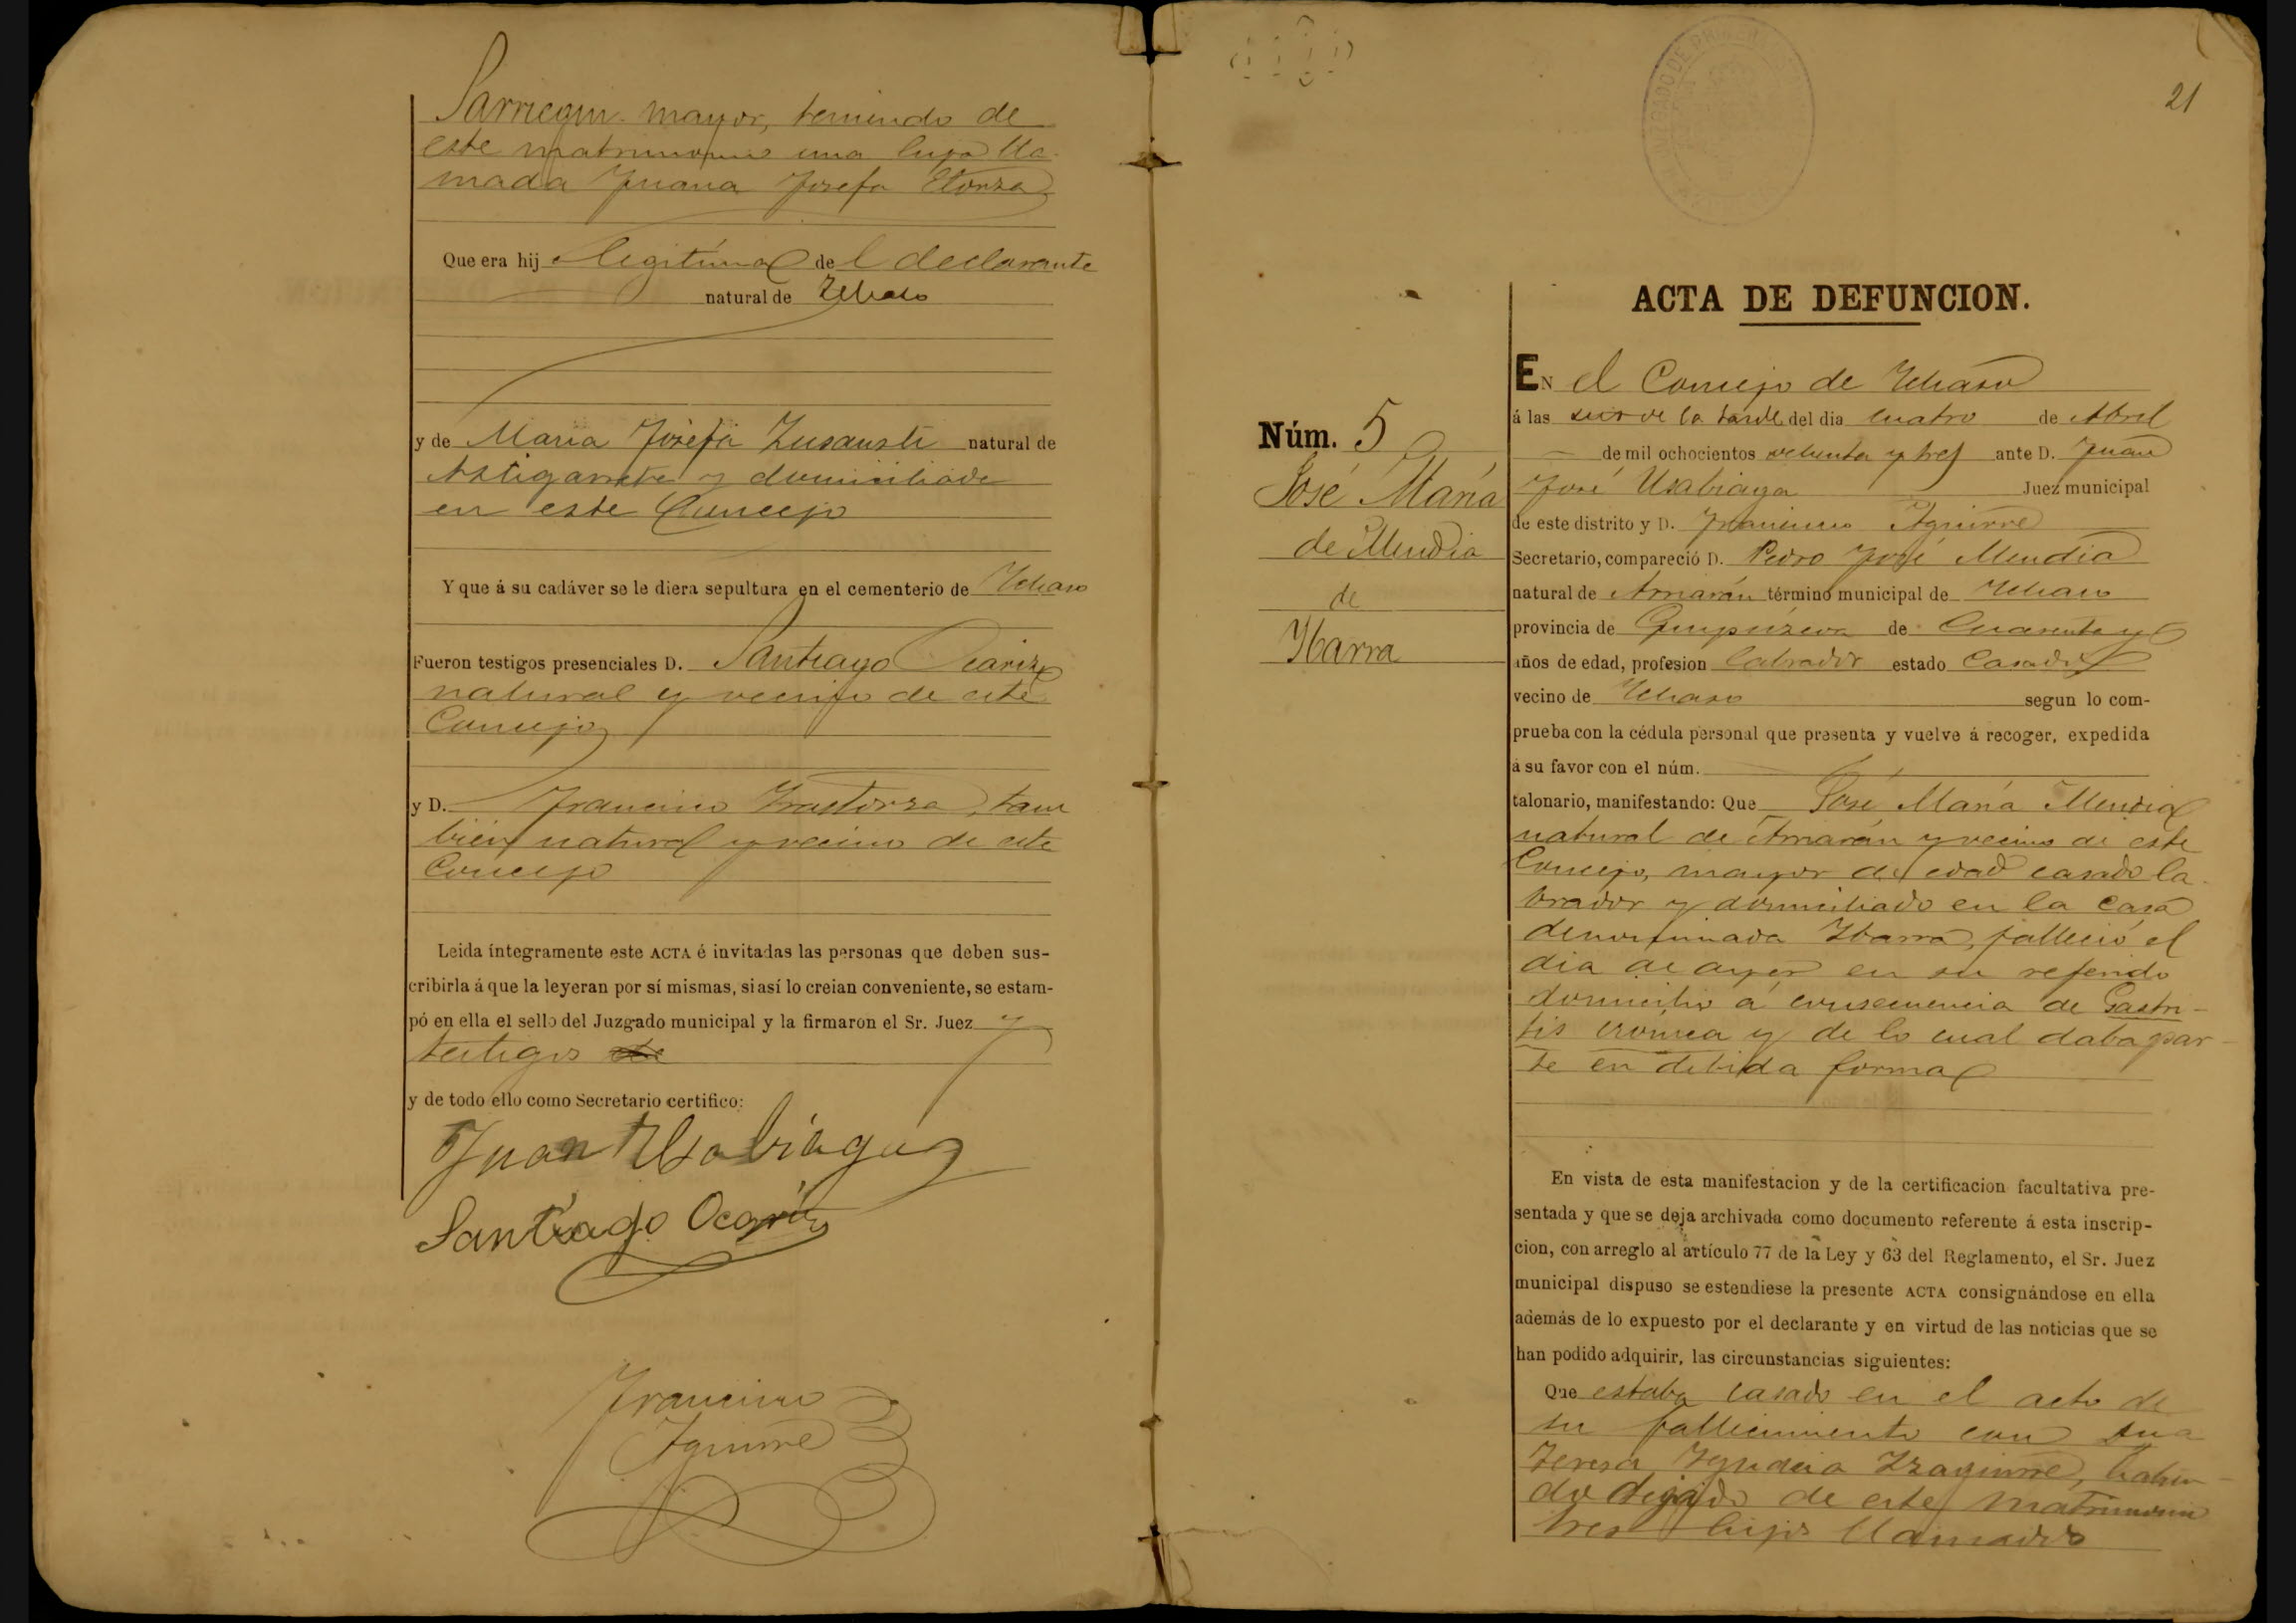 Sarriegui mayor, teniendo de
este matrimonio una hija lla-
mada Juana Josefa Etorza
Que era hij legítima de l declarante
natural de Ichaso
y de Maria Josefa Zusausti natural de
Astigarreta y domiciliada
en este Concejo
Y que á su cadáver se le diera sepultura en el cementerio de Ichaso
Fueron testigos presenciales D. Santiago Ocariz
natural y vecino de este
Concejo
y D. Francisco Irastorza, tam
bien natural y vecino de este
Concejo
Leida íntegramente este ACTA é invitadas las personas que deben sus-
cribirla á que la leyeran por sí mismas, si así lo creian conveniente, se estam-
pó en ella el sello del Juzgado municipal y la firmaron el Sr. Juez y
testigos
y de todo ello como Secretario certifico:
Juan Usabiaga
Santiago Ocariz
Francisco
Aguirre
21
ACTA DE DEFUNCION.
Núm. 5
José María
de Mendia
de
Ibarra
EN el Concejo de Ichaso
á las seis de la tarde del dia cuatro de Abril
de mil ochocientos ochenta y tres ante D. Juan
José Usabiaga Juez municipal
de este distrito y D. Francisco Aguirre
Secretario, compareció D. Pedro José Mendia
natural de Arriarán término municipal de Ichaso
provincia de Guipúzcoa de Cuarenta y
años de edad, profesion labrador estado Casado
vecino de Ichaso segun lo com-
prueba con la cédula personal que presenta y vuelve á recoger, expedida
á su favor con el núm.
talonario, manifestando: Que José María Mendia
natural de Arriarán y vecino de este
Concejo, mayor de edad casado la-
brador y domiciliado en la Casa
denominada Ibarra, falleció el
dia de ayer en su referido
domicilio á consecuencia de Gastri-
tis cronica y de lo cual daba par-
te en debida forma
En vista de esta manifestacion y de la certificacion facultativa pre-
sentada y que se deja archivada como documento referente á esta inscrip-
cion, con arreglo al artículo 77 de la Ley y 63 del Reglamento, el Sr. Juez
municipal dispuso se estendiese la presente ACTA consignándose en ella
además de lo expuesto por el declarante y en virtud de las noticias que se
han podido adquirir, las circunstancias siguientes:
Que estaba casado en el acto de
su fallecimiento con
Teresa Ignacia Izaguirre, habien-
do dejado de este matrimonio
tres hijos llamados